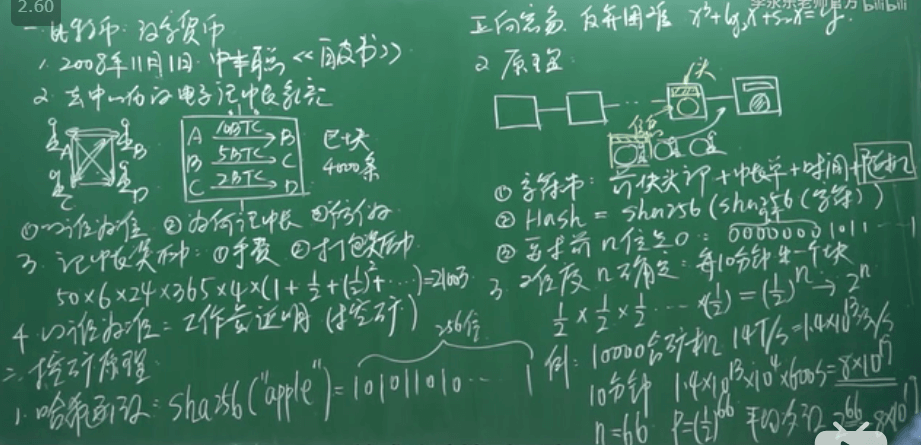 2.60
李永乐老师官方 bilibili
一.比特币:数字货币
1. 2008年11月1日 中本聪 《白皮书》
2. 去中心化的电子记账系统
A B C D
A 10BTC B
B 5BTC C
C 2BTC D
区块
4000条
①以谁为准 ②为何记账 ③防伪
3. 记账奖励: ①手费 ②打包奖励
50×6×24×365×4×(1+½+(½)²+…)=2100万
4. 以谁为准: 工作量证明 (挖矿)
二.挖矿原理
1. 哈希函数: sha256("apple")=101011010…1
256位
正向容易 反算困难
2. 原理
头
信息
①字符串: 前块头部+账单+时间+随机
② Hash = sha256(sha256(字符))
③要求前n位是0: 00000001011…
3. 难度n确定: 每10分钟出一个块
½×½×½…×(½)=(½)ⁿ→2ⁿ
例: 10000台矿机 14T/s=1.4×10¹³次/s
10分钟 1.4×10¹³×10⁴×600s=8×10¹⁹
n=66 P=(½)⁶⁶